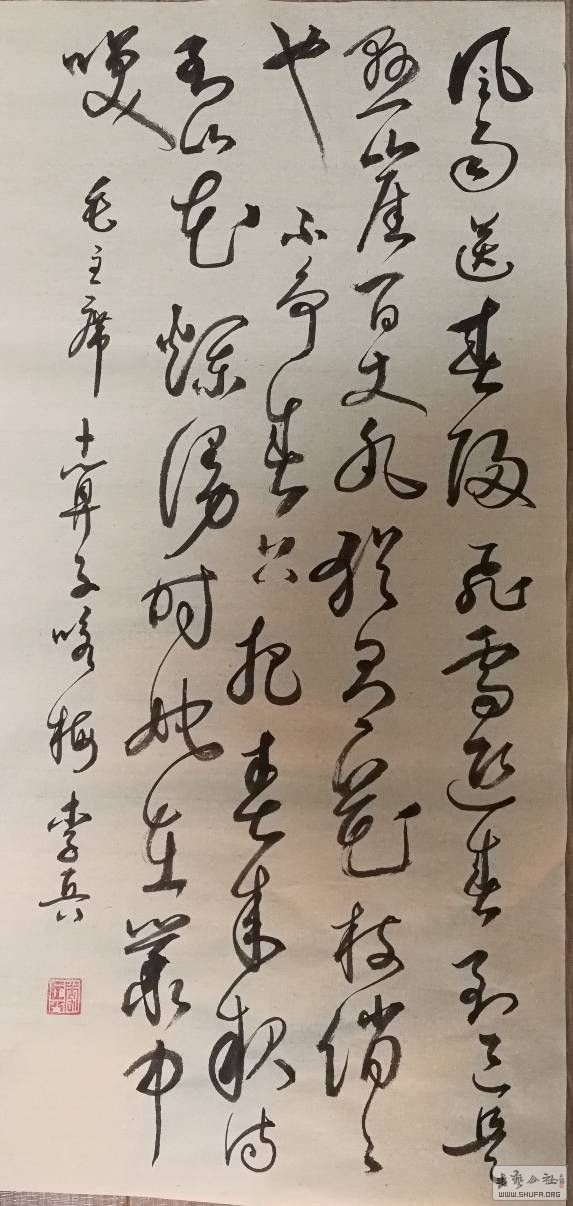 风雨送春归飞雪迎春到已是
悬崖百丈冰犹有花枝俏々
也不争春只把春来报待
到山花烂漫时她在丛中
咲毛主席卜算子咏梅李兵
书艺公社
WWW.SHUFA.ORG